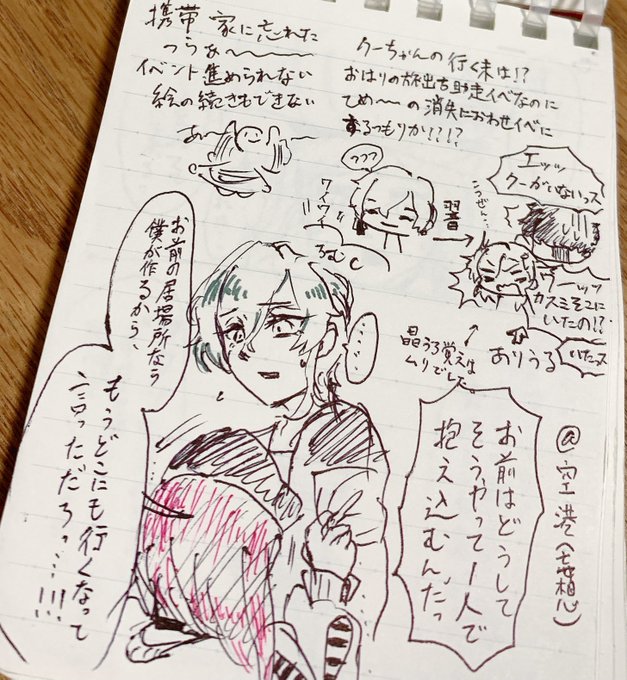 携帯 家に忘れた
つらぁ〜
イベント進められない
絵の続きもできない
あ〜
クーちゃんの行く末は!?
おはりの旅出古助走イベなのに
てめ〜の消失におわせイベに
するつもりか????
フフフ
ワイワイ
翌
エッッ
クーがいないっス
こつぜん…
ワーッッ
カスミそこに
いたの!?
ありうる
いたっス
晶うろ覚えは
ムリでした。
お前の居場所なら
僕が作るから、
もうどこにも行くなって
言っただろっ…!!!
…
お前はどうして
そうやって1人で
抱え込むんだっ
@空港(妄想)